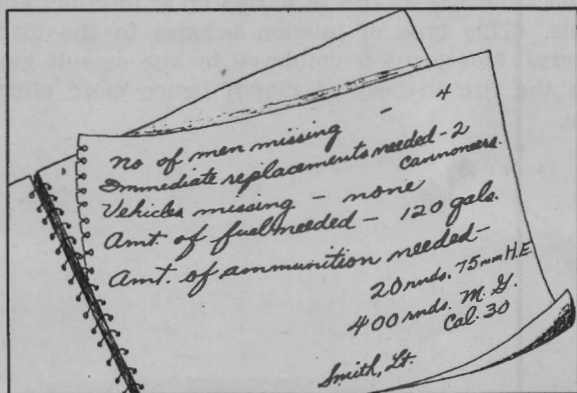 No of men missing 4
Immediate replacements needed - 2
Cannoneers.
Vehicles missing - none
Amt. of fuel needed - 120 gals.
Amt. of ammunition needed -
20 rnds. 75mm H.E
400 rnds. M. G.
Cal. 30
Smith, Lt.